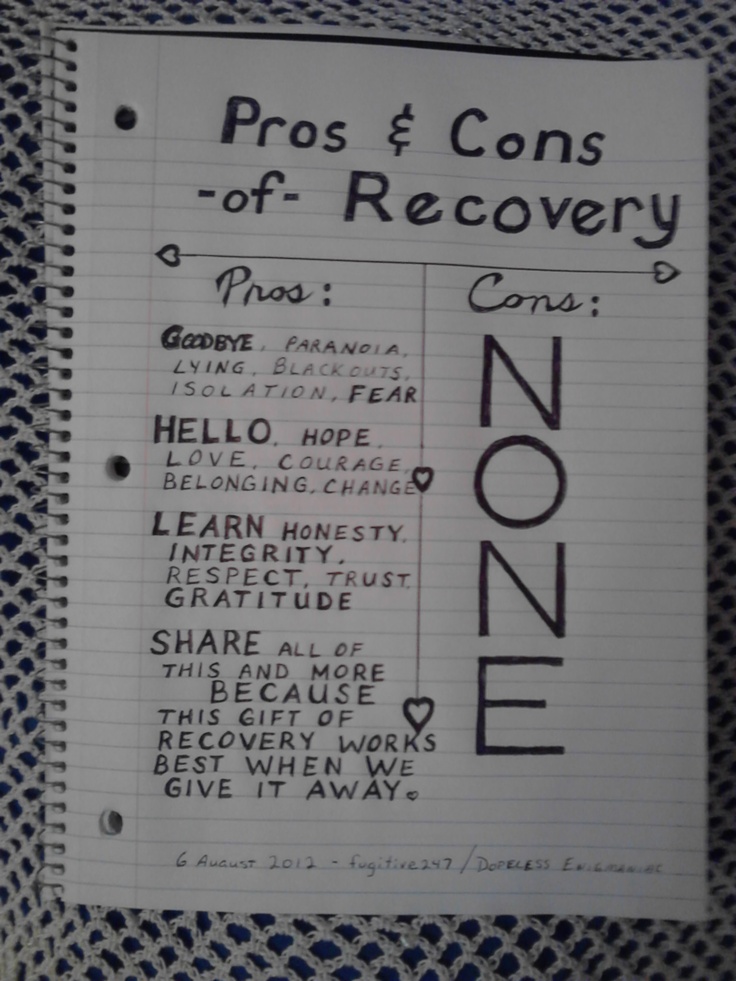 Pros & Cons
-of- Recovery
Pros:
GOODBYE, PARANOIA,
LYING, BLACKOUTS,
ISOLATION, FEAR
HELLO, HOPE,
LOVE, COURAGE,
BELONGING, CHANGE
LEARN HONESTY,
INTEGRITY,
RESPECT, TRUST,
GRATITUDE
SHARE ALL OF
THIS AND MORE
BECAUSE
THIS GIFT OF
RECOVERY WORKS
BEST WHEN WE
GIVE IT AWAY.
Cons:
N
O
N
E
6 August 2012 - fugitive247 / DOPELESS ENIGMANIAC